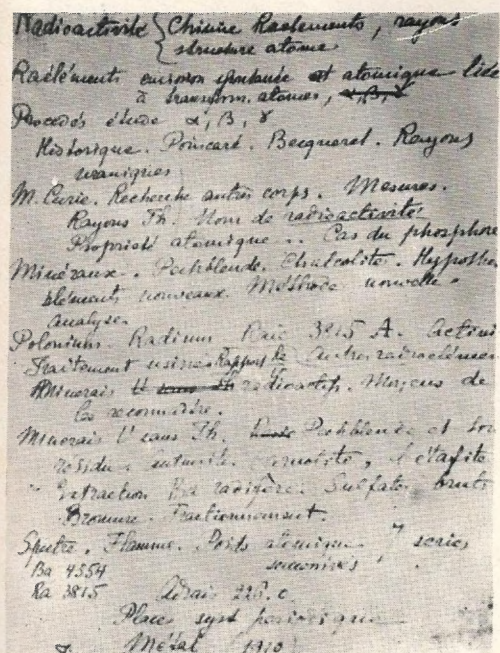 Radioactivité { Chimie Raélements, rayons
structure atome
Raéléments émission spontanée et atomique liée
à transform. atomes, α, β, γ
Procédés étude α, β, γ
Historique. Poincaré. Becquerel. Rayons
uraniques
M. Curie. Recherche autres corps. Mesures.
Rayons Th. Nom de radioactivité
Propriété atomique.. Cas du phosphore
Minéraux. Pechblende. Chalcolite. Hypothès
éléments nouveaux. Méthode nouvelle.
analyse.
Polonium. Radium Raie 3815 A. Actini
Traitement usine. Rapport Autres radioéléments
Minerais radioactifs. Moyens de
les reconnaître.
Minerais U sans Th. Pechblende et son
résidu. autunite. carnotite,
Extraction Ra radifère. Sulfates bruts
Bromure. Fractionnement.
Spectre. Flamme. Poids atomique, séries
successives
Ba 4554
Ra 3815 226.
Place syst périodique
Métal (1910)